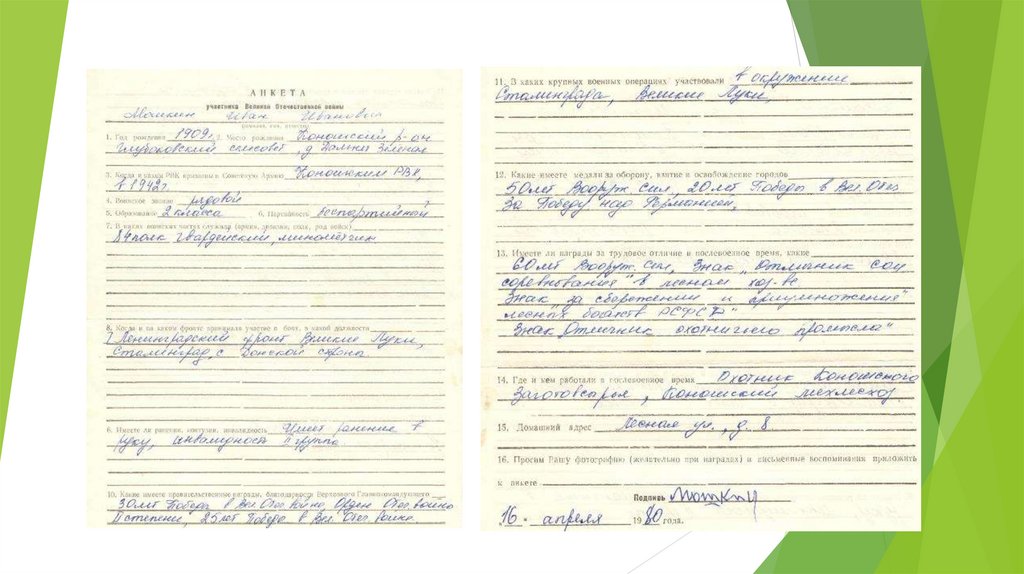 АНКЕТА
участника Великой Отечественной войны
Мошкин Иван Иванович
(фамилия, имя, отчество)
1. Год рождения 1909г. 2. Место рождения Коношский р-он
Глубоковский сельсовет, д
3. Когда и каким РВК призваны в Советскую Армию Коношским РВК,
в 1942г.
4. Воинское звание рядовой
5. Образование 2 класса 6. Партийность беспартийный
7. В каких воинских частях служили (армия, дивизия, полк, род войск)
84 полк Гвардейский, минометчик
8. Когда и на каком фронте принимали участие в боях, в какой должности
Ленинградский фронт Великие Луки,
Сталинград, с Донской стороны
9. Имеете ли ранения, контузии, инвалидность Имеет ранение в
руку, инвалидность II группа
10. Какие имеете правительственные награды, благодарности Верховного Главнокомандующего
30 лет Победы в Вел. Отеч. войне Орден Отеч. войны
II степени, 25 лет Победы в Вел. Отеч. войне.
11. В каких крупных военных операциях участвовали в окружении
Сталинграда, Великие Луки,
12. Какие имеете медали за оборону, взятие и освобождение городов
50 лет Вооруж. Сил, 20 лет Победы в Вел. Отеч
За Победу над Германией,
13. Имеете ли награды за трудовое отличие в послевоенное время, какие
60 лет Вооруж. Сил, Знак „Отличник соц
соревнования" в лесном хоз-ве
Знак „за сбережение и приумножение
лесных богатств РСФСР"
Знак „Отличник охотничьего промысла"
14. Где и кем работали в послевоенное время Охотник Коношского
Заготовсырья, Коношский мехлесхоз
15. Домашний адрес Лесная ул., д. 8
16. Просим Вашу фотографию (желательно при наградах) и письменные воспоминания приложить
к анкете
Подпись Мошкин
16 " апреля 1980 года.